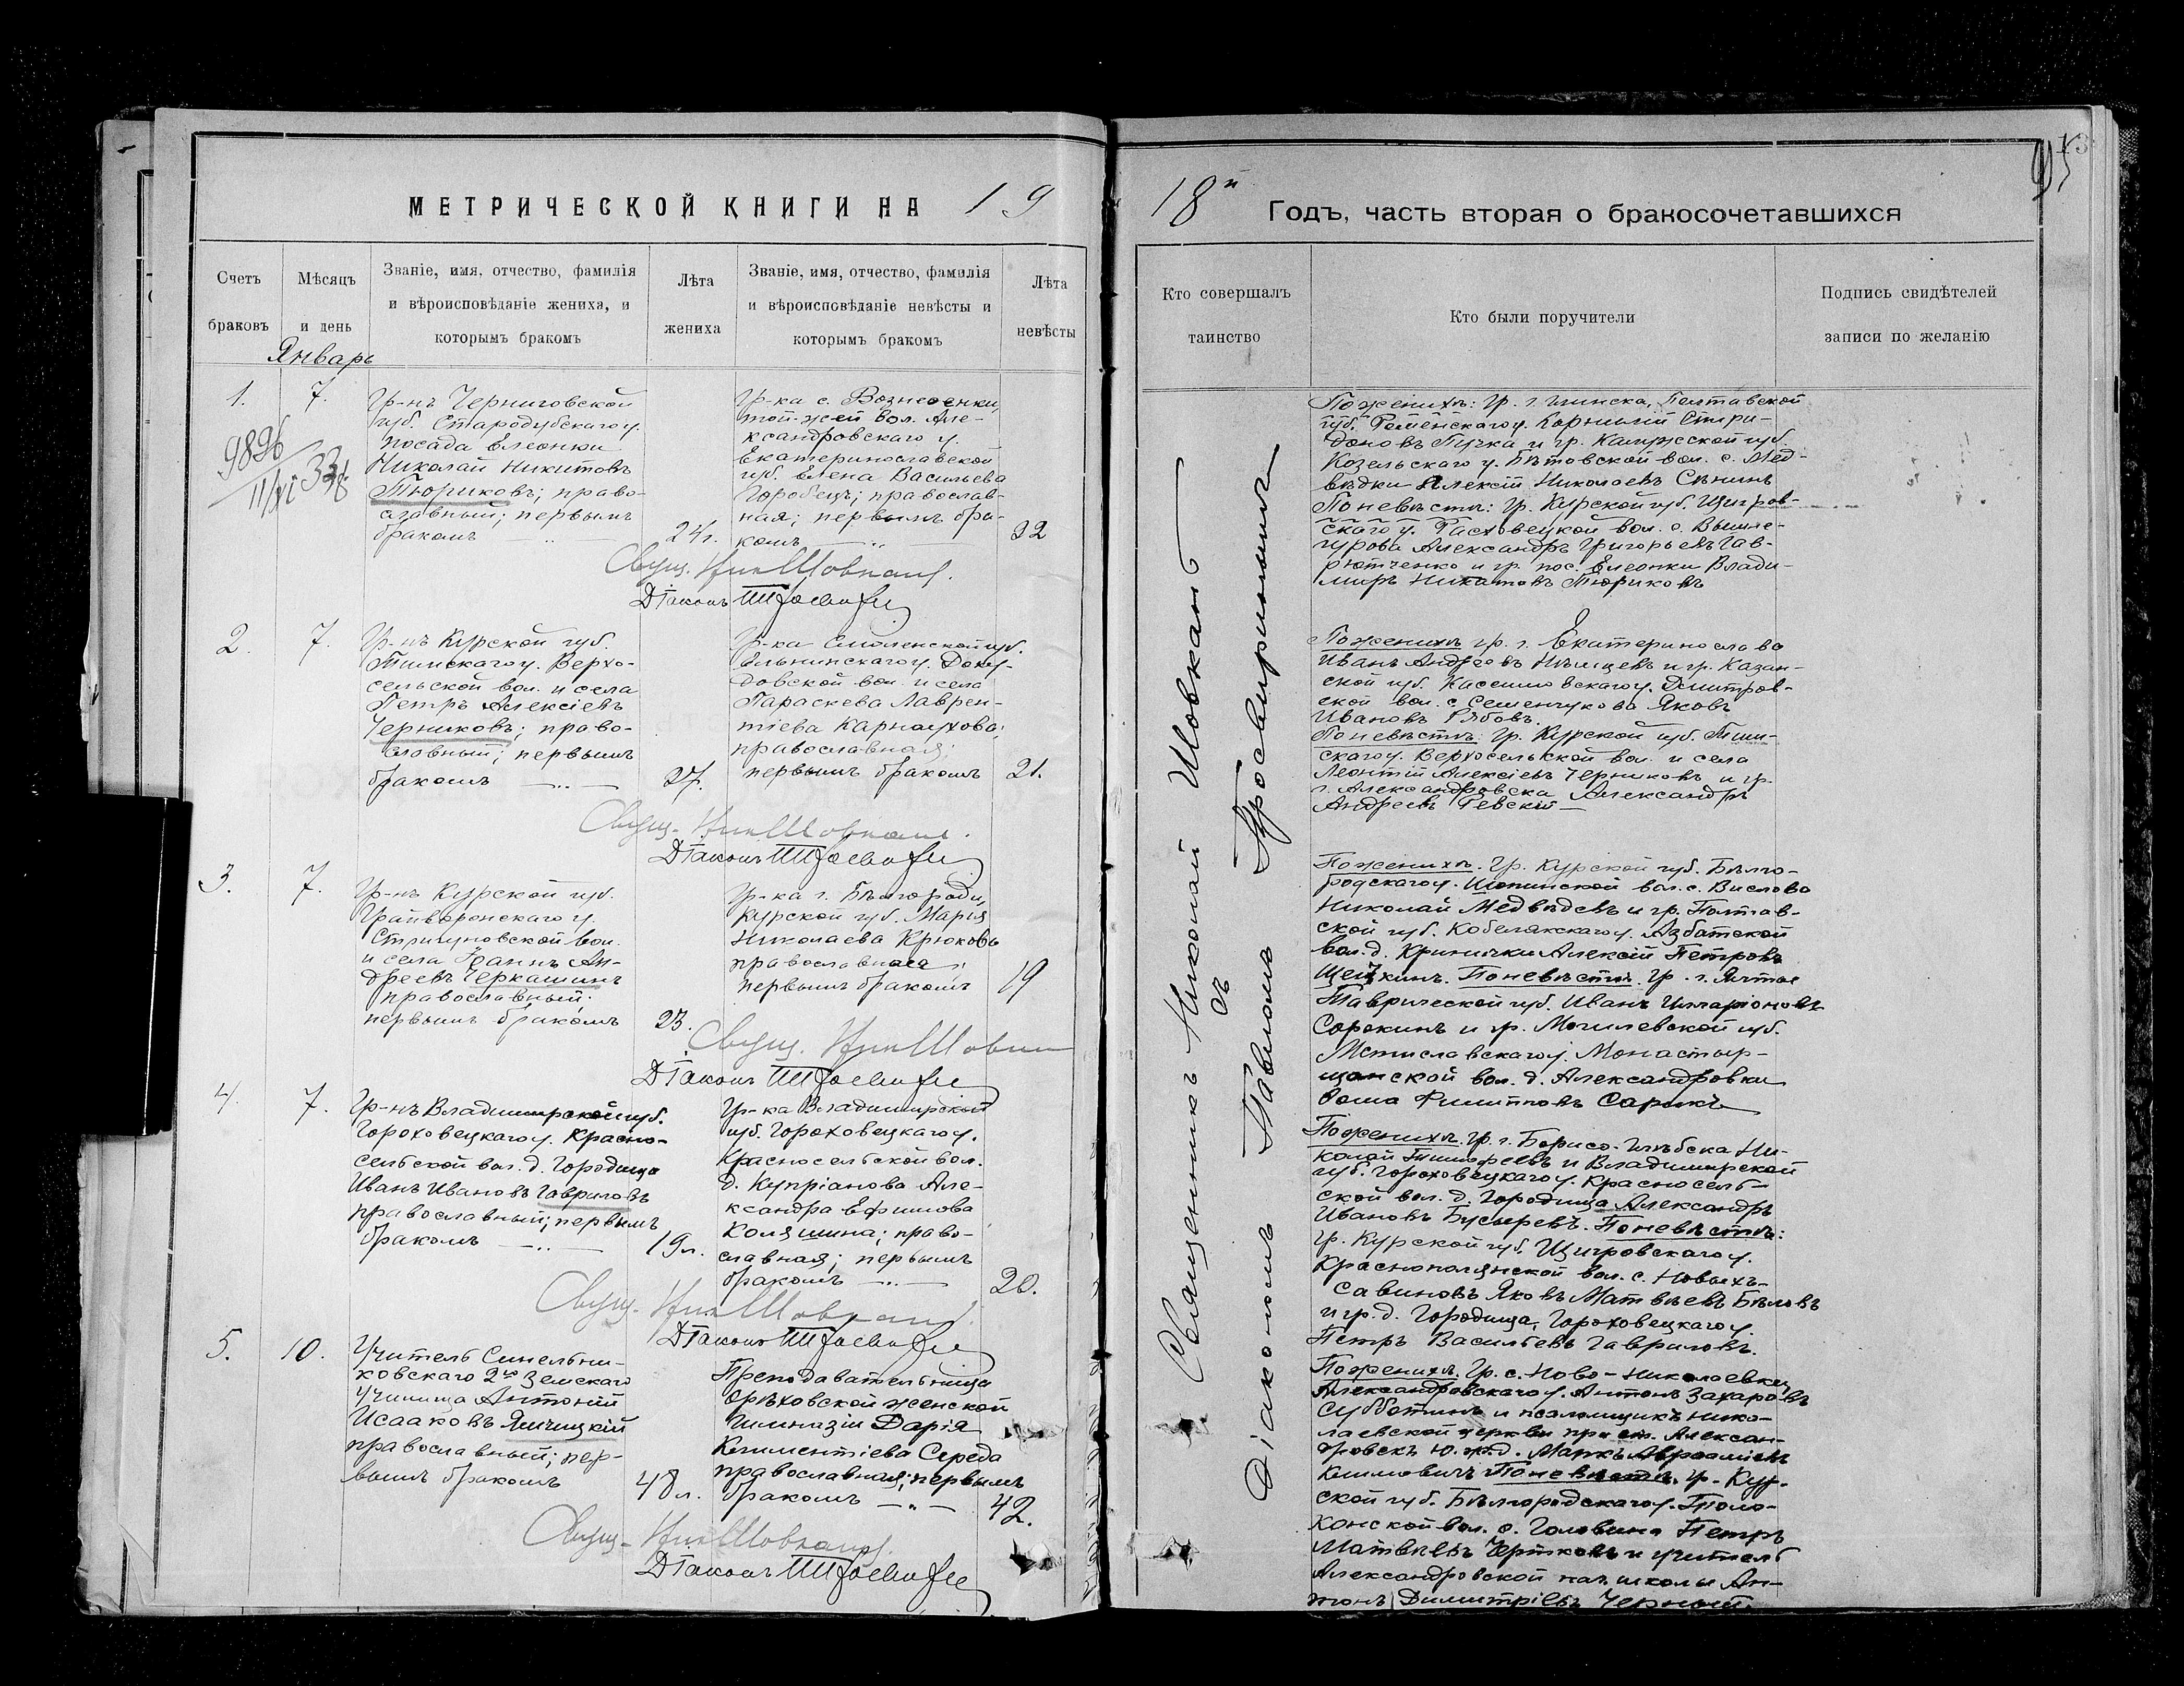 МЕТРИЧЕСКОЙ КНИГИ НА 19
Счетъ браковъ
Мѣсяцъ и день
Званіе, имя, отчество, фамилія и вѣроисповѣданіе жениха, и которымъ бракомъ
Лѣта жениха
Званіе, имя, отчество, фамилія и вѣроисповѣданіе невѣсты и которымъ бракомъ
Лѣта невѣсты
Январь
1.
7.
9896
11/VI
Гр-нъ Черниговской
губ. Стародубскаго у.
посада Елеонки
Николай Никитовъ
Тюриковъ; право-
славный; первымъ
бракомъ
24 г.
Гр-ка с. Вознесенки,
той-же вол. Але-
ксандровскаго у.
Екатеринославской
губ. Елена Васильева
Городецъ; православ-
ная; первымъ бра-
комъ
22
Свящ. Ник Шовкапл.
Діаконъ
2.
7.
Гр-нъ Курской губ.
Тимскаго у. Верхо-
сельской вол. и села
Петръ Алексіевъ
Черниковъ; право-
славный; первымъ
бракомъ
27.
Гр-ка Смоленской губ.
Ельнинскаго у.
довской вол. и села
Параскева Лаврен-
тіева Карнаухова;
православная;
первымъ бракомъ
21.
Свящ. Ник Шовкапл.
Діаконъ
3.
7.
Гр-нъ Курской губ.
Грайворонскаго у.
Стригуновской вол.
и села Іоаннъ Ан-
дреевъ Черкашинъ
православный;
первымъ бракомъ
23.
Гр-ка г. Бѣлгорода,
Курской губ. Марія
Николаева Крюкова
православная;
первымъ бракомъ
19
Свящ. Ник Шовкапл
Діаконъ
4.
7.
Гр-нъ Владимирской губ.
Гороховецкаго у. Красно-
сельской вол. д. Городища
Иванъ Ивановъ Гавриловъ
православный; первымъ
бракомъ
19 л.
Гр-ка Владимирской
губ. Гороховецкаго у.
Красносельской вол.
д. Купріанова Але-
ксандра Ефимова
Коляшина; право-
славная; первымъ
бракомъ
20.
Свящ. Ник Шовкапл.
Діаконъ
5.
10.
Учитель Синельни-
ковскаго 2го Земскаго
училища Антоній
Исааковъ Ямчицкій
православный; пер-
вымъ бракомъ
48 л.
Преподавательница
Орѣховской женской
гимназіи Дарія
Климентіева Середа
православная; первымъ
бракомъ
42.
Свящ. Ник Шовкапл.
Діаконъ
18й Годъ, часть вторая о бракосочетавшихся
Кто совершалъ таинство
Кто были поручители
Подпись свидѣтелей записи по желанію
Священникъ Николай Шовкапл
съ
Діакономъ Павломъ
По женихѣ: гр. г. Глинска, Полтавской
губ. Роменскаго у. Корнилій Спири-
доновъ Пучка и гр. Калужской губ.
Козельскаго у. вол. с. Мед-
вѣдки Алексій Николаевъ Сѣнинъ
По невѣстѣ: гр. Курской губ. Щигров-
скаго у. Расховецкой вол. с. Вышне-
гурова Александръ Григорьевъ Гав-
рютченко и гр. пос. Елеонки Влади-
миръ Никитовъ Тюриковъ
По женихѣ гр. г. Екатеринослава
Иванъ Андреевъ Нѣмцевъ и гр. Казан-
ской губ. Касимовскаго у. Дмитров-
ской вол. с. Семенчукова Яковъ
Ивановъ Рябовъ.
По невѣстѣ: гр. Курской губ. Тим-
скаго у. Верхосельской вол. и села
Леонтій Алексіевъ Черниковъ и гр.
г. Александровска Александръ
Андреевъ Гевскій
По женихѣ. Гр. Курской губ. Бѣлго-
родскаго у. Шопинской вол. с. Вислова
Николай Медвѣдевъ и гр. Полтав-
ской губ. Кобелякскаго у.
вол. д. Кринички Алексій Петровъ
По невѣстѣ. Гр. г. Ялты
Таврической губ. Иванъ Иларіоновъ
Сорокинъ и гр. Могилевской губ.
Мстиславскаго у. Монастыр-
щанской вол. д. Александровки
Фома Филипповъ
По женихѣ. гр. г. Борисо-Глѣбска Ни-
колай Тимофеевъ и Владимирской
губ. Гороховецкаго у. Красносель-
ской вол. д. Городища Александръ
Ивановъ Бусыревъ. По невѣстѣ:
гр. Курской губ. Щигровскаго у.
Краснополянской вол. с. Новыхъ-
Савиновъ Яковъ Матвѣевъ Бѣловъ
и гр. д. Городища, Гороховецкаго у.
Петръ Васильевъ Гавриловъ.
По женихѣ. Гр. с. Ново-Николаевки,
Александровскаго у. Антонъ Захаровъ
Субботинъ и псаломщикъ Нико-
лаевской церкви при ст. Алексан-
дровскъ Ю. ж. д. Маркъ Авраамієвъ
Климовичъ По невѣстѣ. гр. Кур-
ской губ. Бѣлгородскаго у. Толо-
конской вол. с. Головина Петръ
Матвѣевъ Чертковъ и учитель
Александровской нач. школы Ан-
тонъ Димитріевъ Черный.